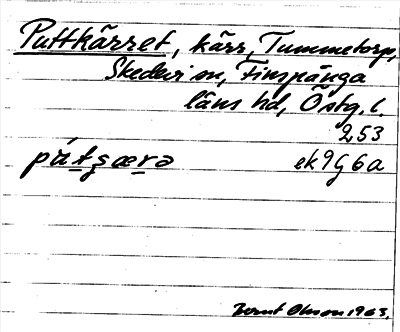 Puttkärret, kärr, Tummetorp,
Skedevi sn, Finspånga
läns hd, Östg. l.
253
pút̠ʂæ̠rə ek 9G 6a
Bernt Olsson 1963.